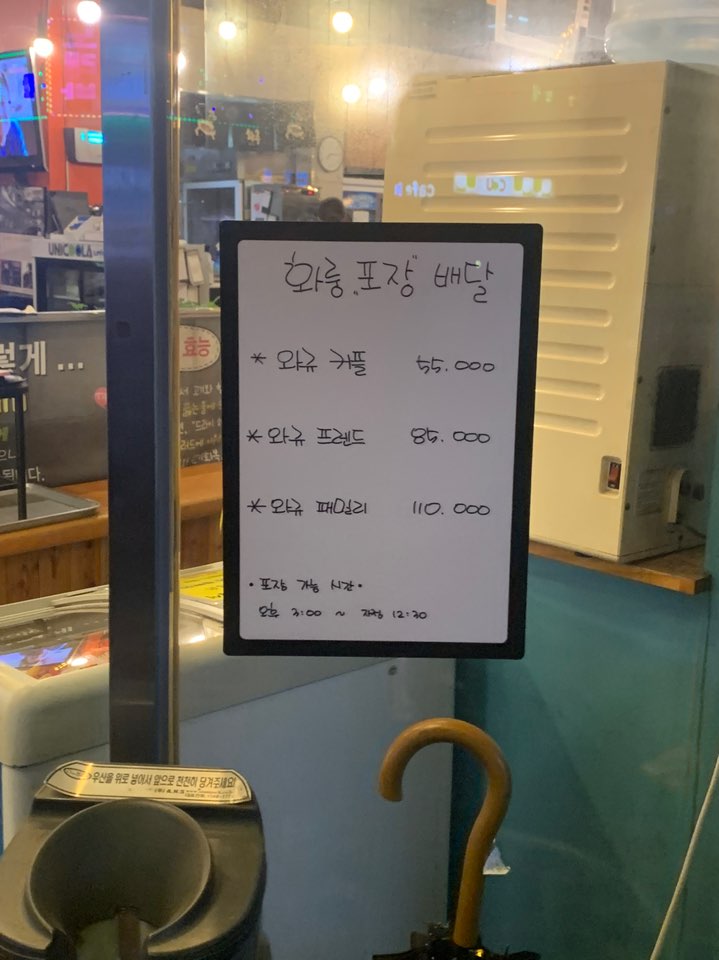 화룽 "포장" 배달
* 와규 커플 55.000
* 와규 프렌드 85.000
* 와규 패밀리 110.000
• 포장 가능 시간 •
오후 3:00 ~ 자정 12:30
우산을 위로 넣어서 앞으로 천천히 당겨주세요!
효능
렇게 ...